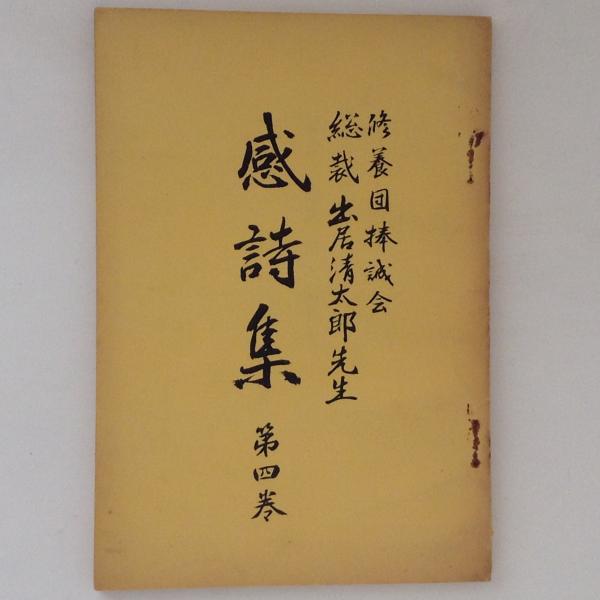 修養団捧誠会
総裁出居清太郎先生
感詩集 第四巻